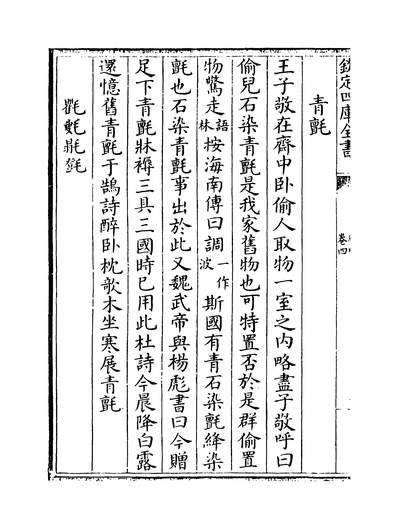 欽定四庫全書
卷四
青氈
王子敬在齋中卧偷人取物一室之内略盡子敬呼曰
偷兒石染青氈是我家舊物也可特置否於是群偷置
物驚走語林按海南傳曰調一作波斯國有青石染氈絳染
氈也石染青氈事出於此又魏武帝與楊彪書曰今贈
足下青氈牀褥三具三國時已用此杜詩今晨降白露
還憶舊青氈于鵠詩醉卧枕歌木坐寒展青氈